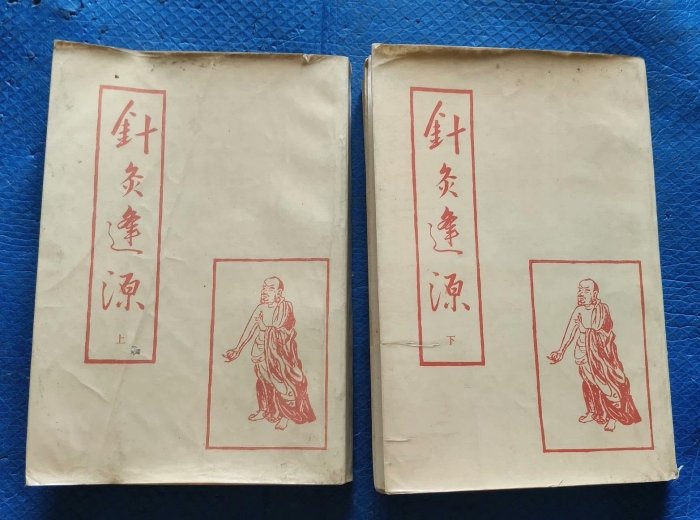 針灸逢源
上
針灸逢源
下